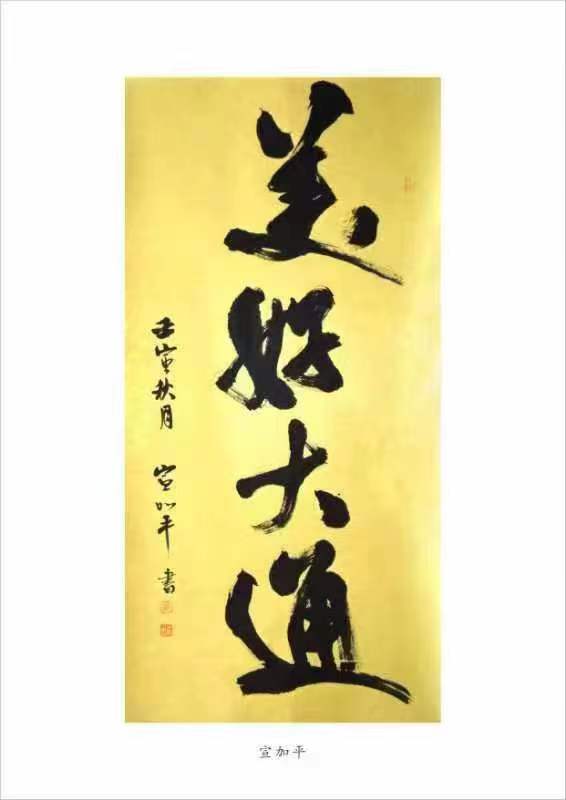 美好大通
壬寅秋月 宣加平 書
宣加平